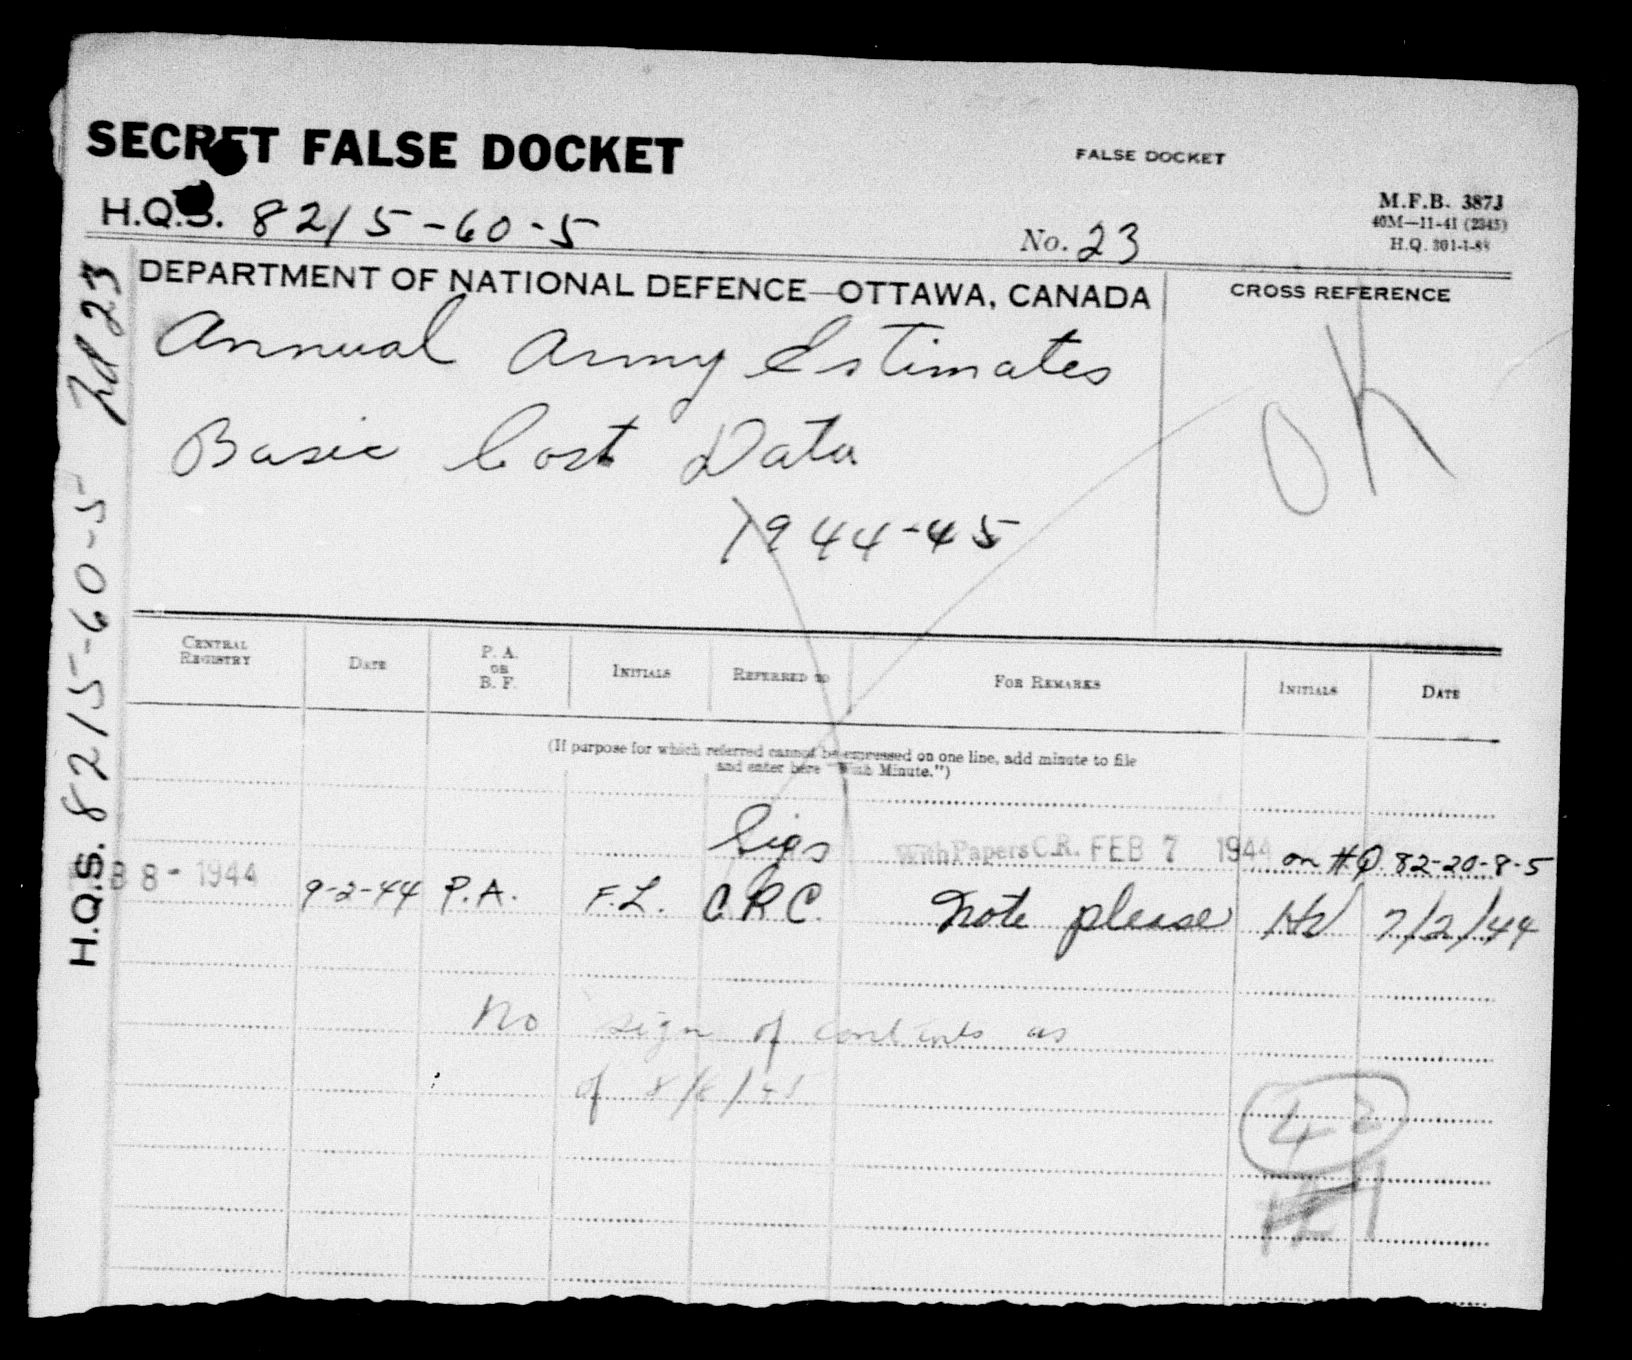 SECRET FALSE DOCKET
FALSE DOCKET
H.Q.S. 8215-60-5
No. 23
M.F.B. 387J
40M—11-41 (2345)
H.Q. 301-1-88
DEPARTMENT OF NATIONAL DEFENCE—OTTAWA, CANADA
CROSS REFERENCE
Annual Army Estimates
Basic Cost Data
1944-45
OK
H.Q.S. 8215-60-5 fd 23
CENTRAL REGISTRY DATE P. A. OR B. F. INITIALS REFERRED TO FOR REMARKS INITIALS DATE
(If purpose for which referred cannot be expressed on one line, add minute to file
and enter here "With Minute.")
Sigs With Papers C.R. FEB 7 1944 on H.Q. 82-20-8-5
FEB 8 - 1944 9-2-44 P.A. F.L. C.R.C. Note please HW 7/2/44
No sign of contents as
of 8/8/45
42